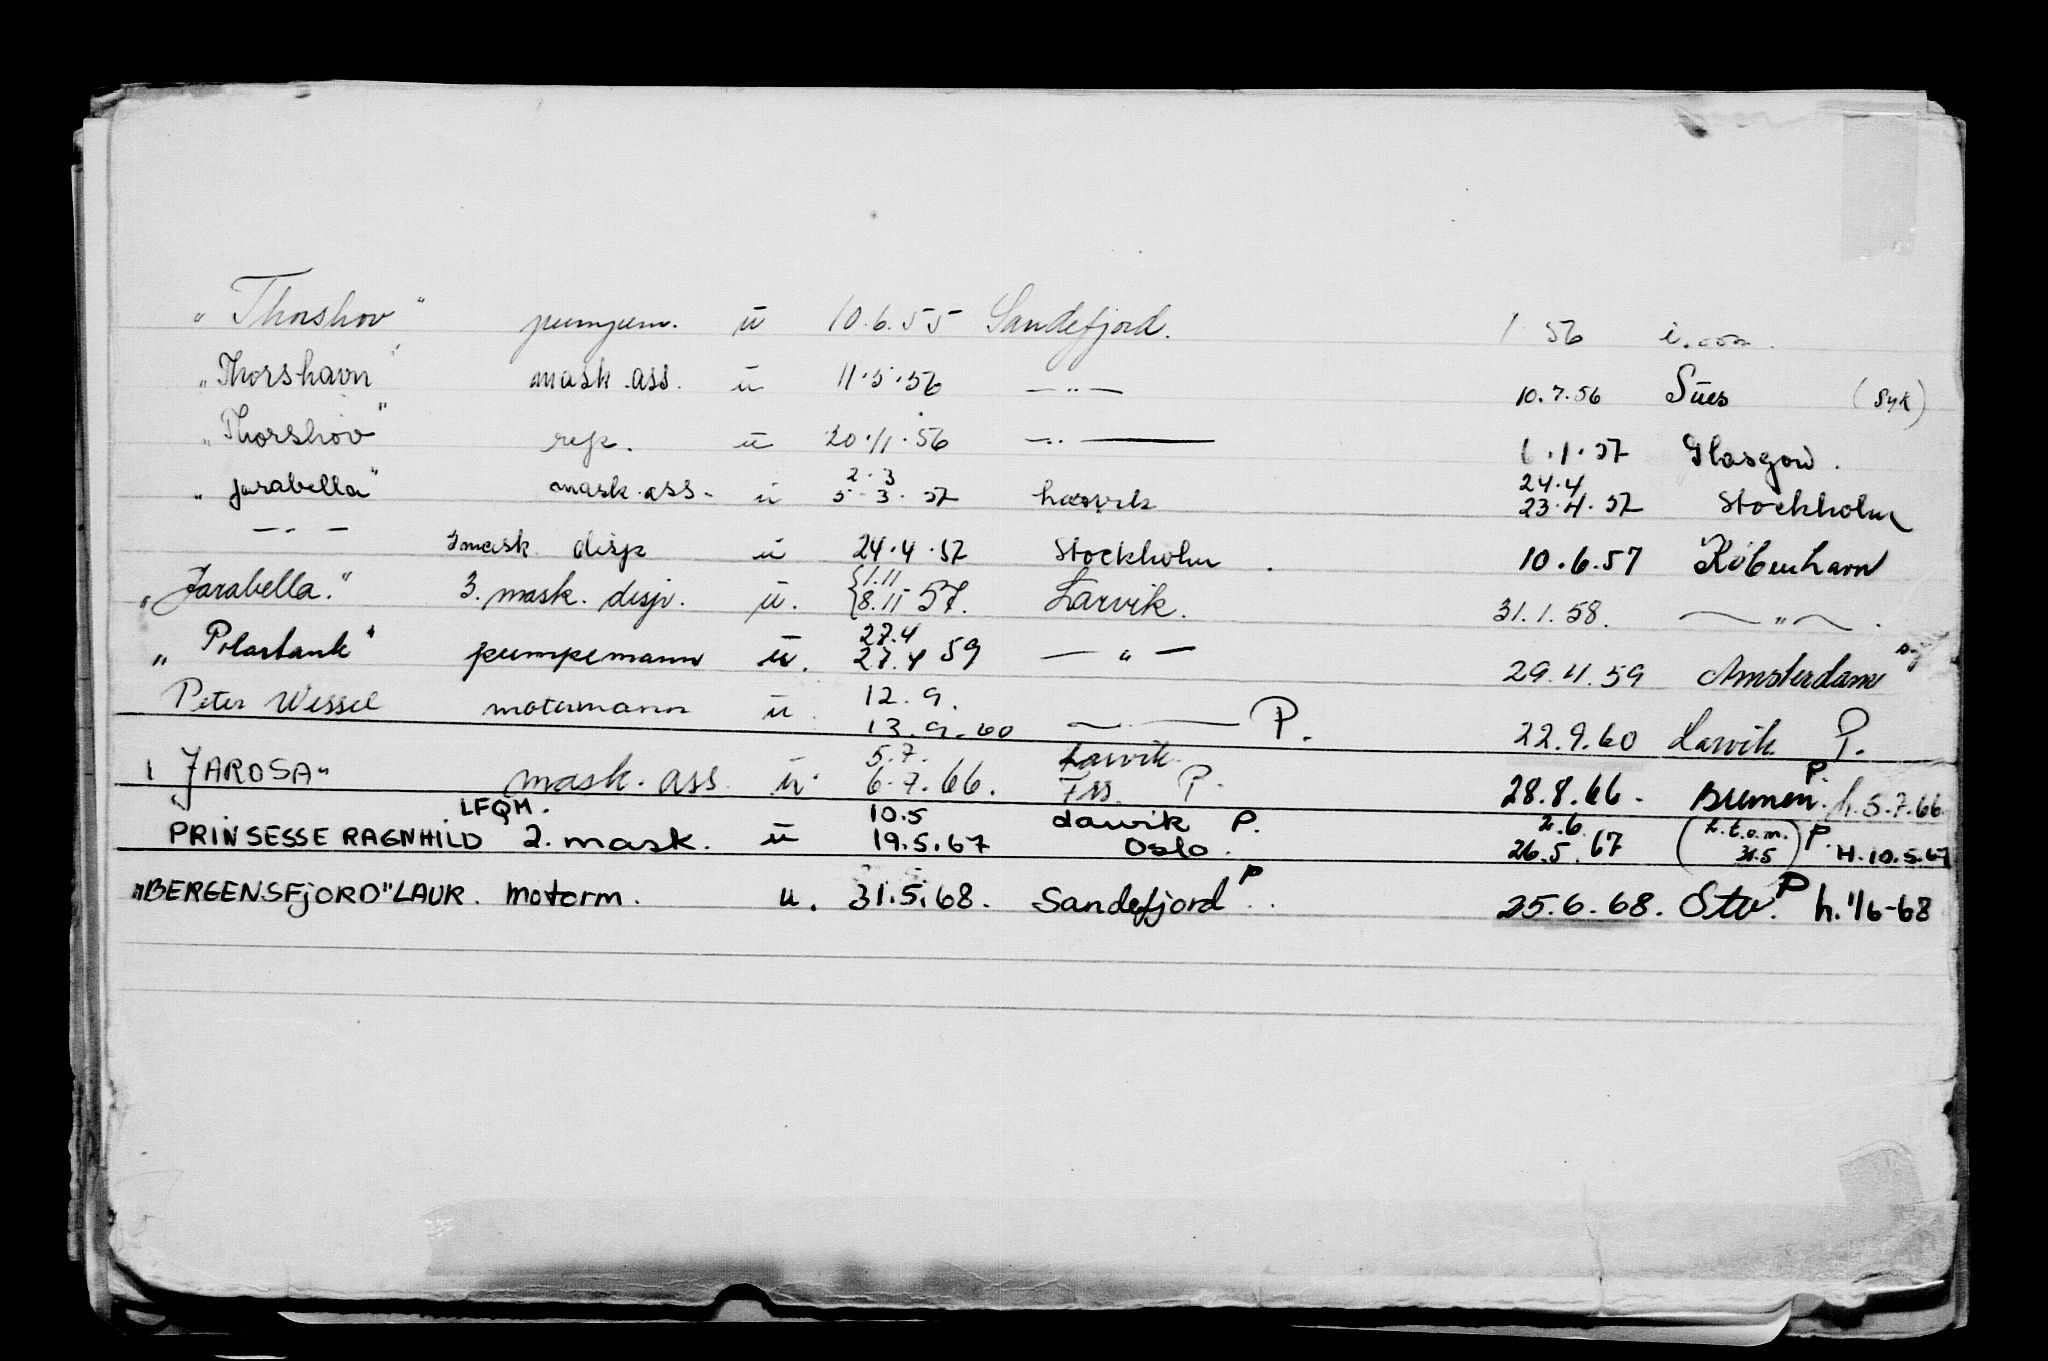 „Thorshov“ pumpem. ü 10.6.55 Sandefjord. 1 56
„Thorshavn“ mask.ass. ü 11.5.56 — „ — 10.7.56 Sües (syk)
„Thorshov“ rep. ü 20.11.56 — „ — 6.1.57 Glasgow.
2.3 24.4
„Jarabella“ mask.ass. ü 5.3.57 23.4.57 Stockholm
— „ — 3 mask disp ü 24.4.57 Stockholm. 10.6.57 København
1.11
„Jarabella.“ 3. mask. disp. ü. 8.11 57. Larvik. 31.1.58. — „ —.
27.4
„Polartank“ pumpemann ü. 27.4 59 — „ — 29.11.59 Amsterdam
12.9.
Peter Wessel motormann ü. 13.9.60 — „ — P. 22.9.60 Larvik P.
5.7. Larvik.
JAROSA“ mask.ass ü. 6.7.66. P. 28.8.66. Bremen P. h.5.7.66
LFQM. 10.5 Larvik P. 2.6 (h.t.o.m. 31.5) P.
PRINSESSE RAGNHILD 2. mask. ü 19.5.67 Oslo. 26.5.67 H.10.5.67
„BERGENSFJORD“ LAUR. motorm. u. 31.5.68. Sandefjord P. 25.6.68. Stv. P h. 1/6-68